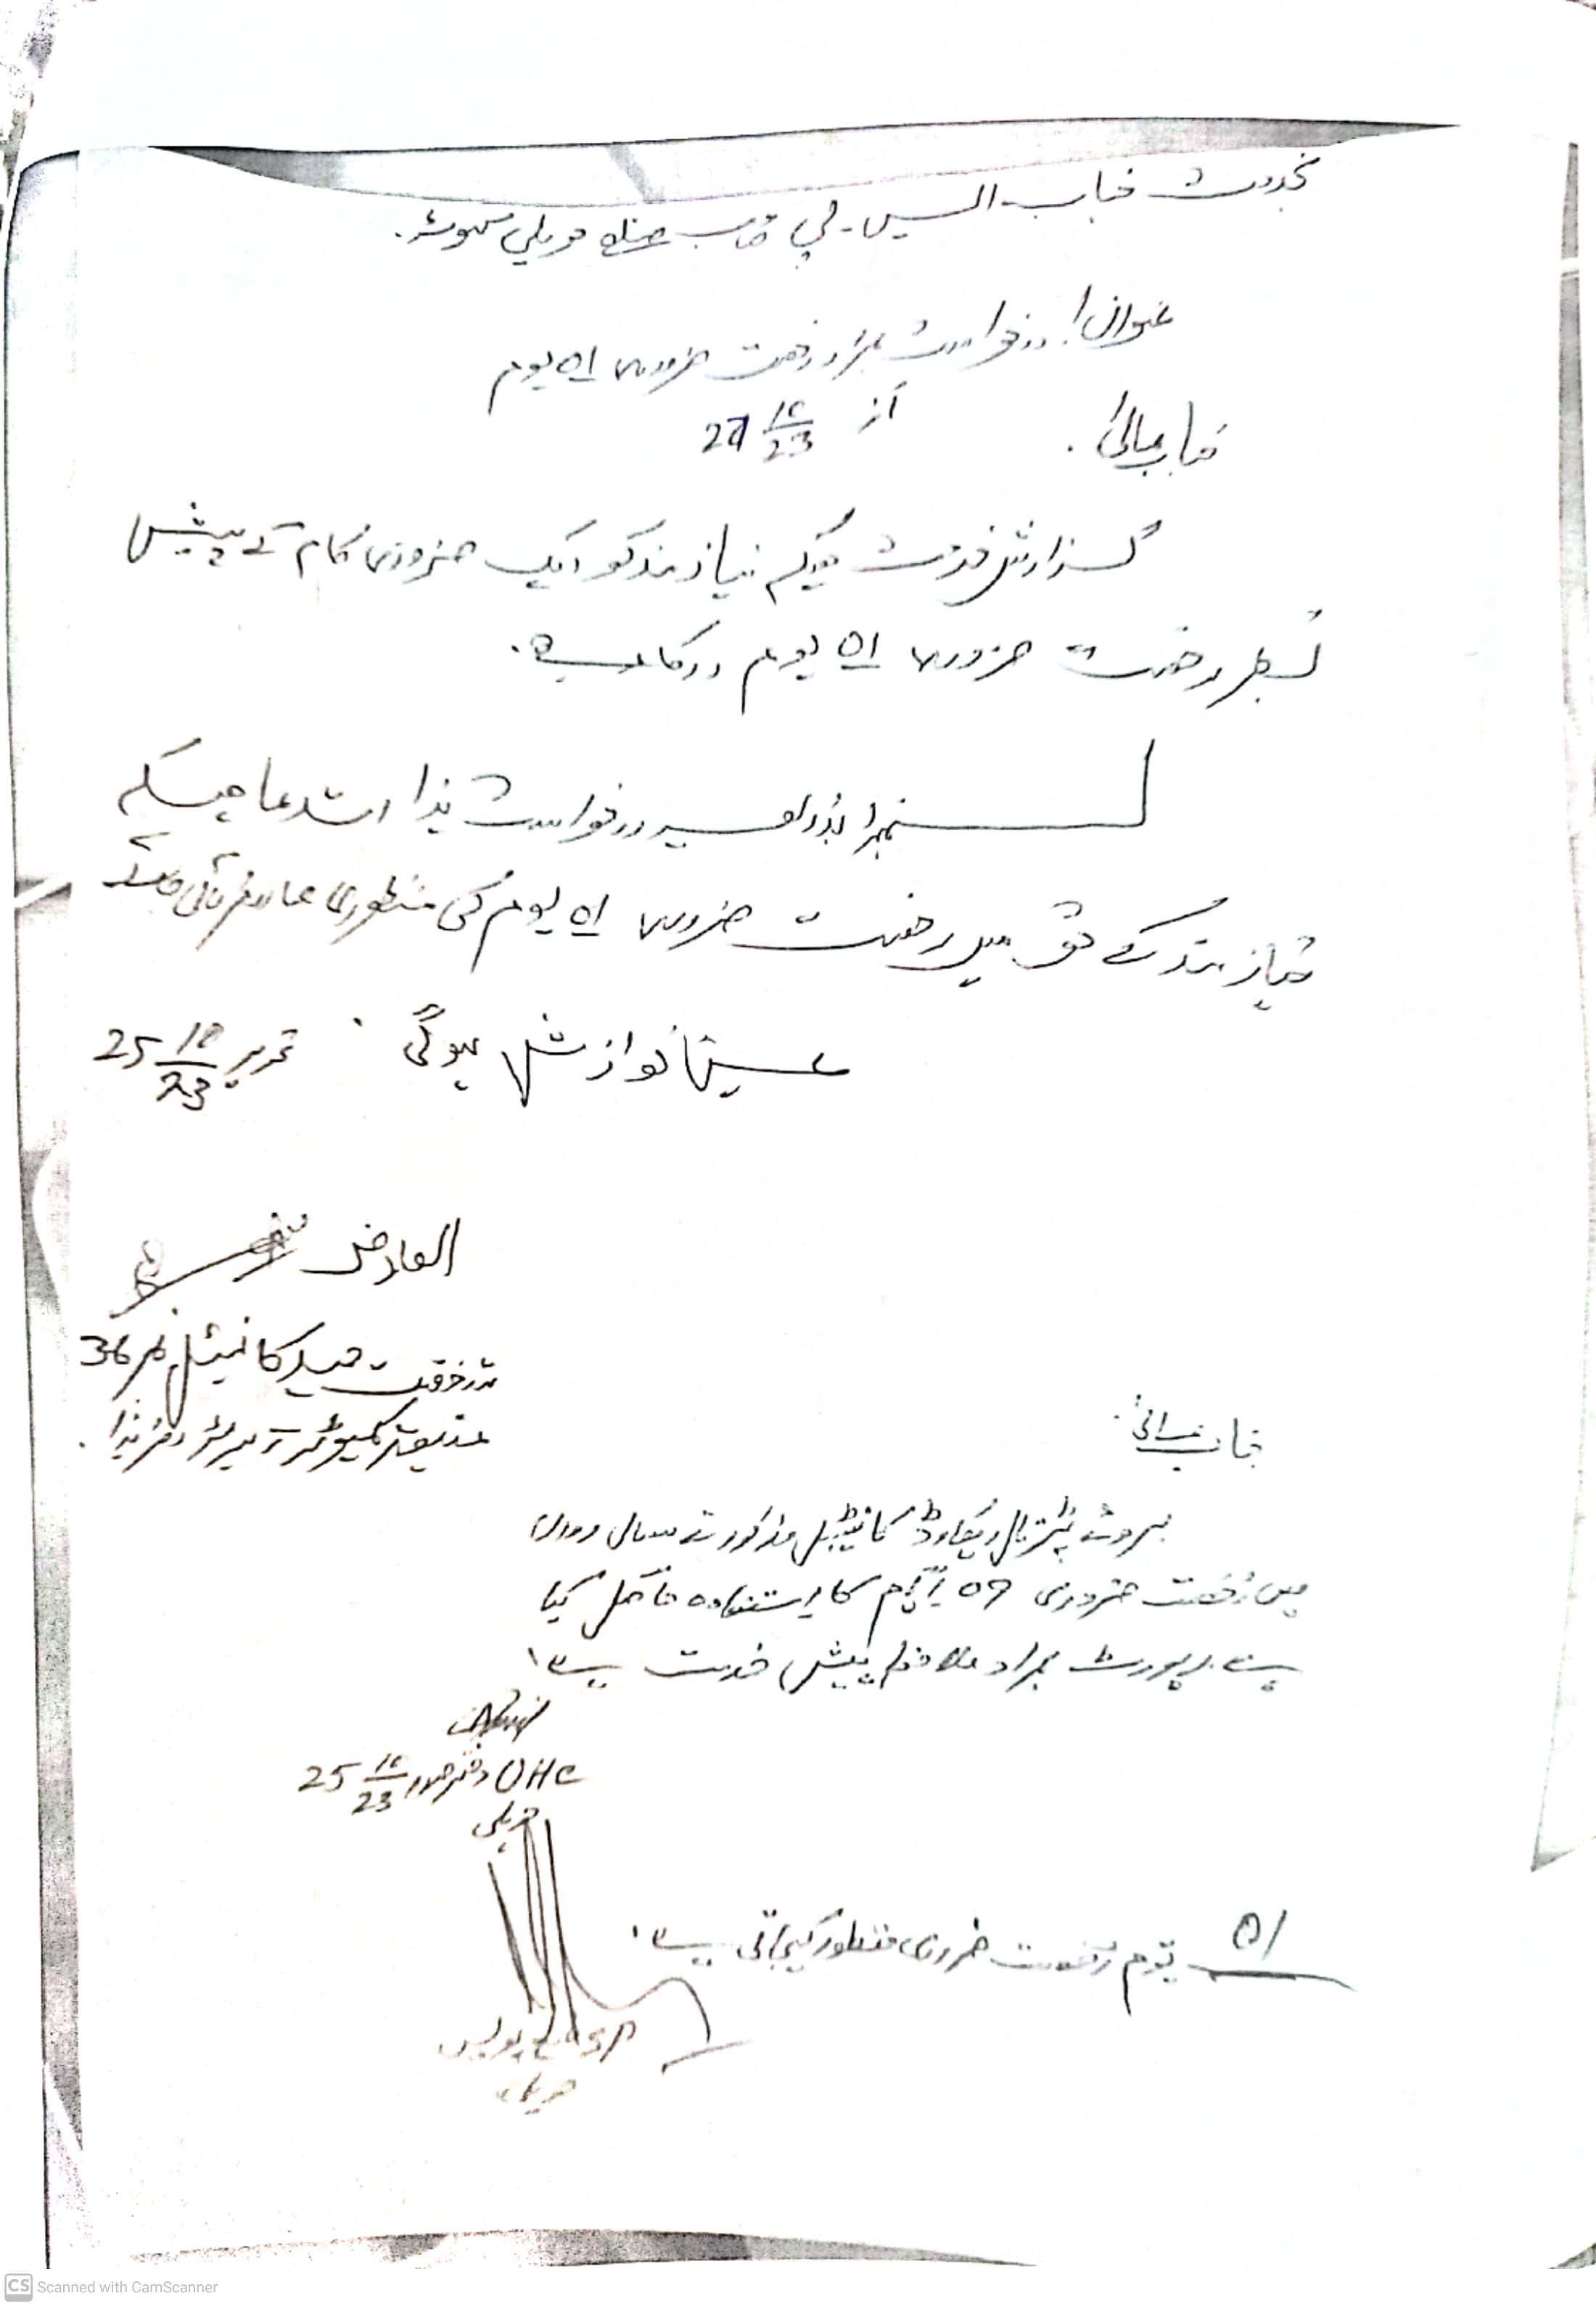 بخدمت جناب ایس۔پی صاحب ضلع حویلی کہوٹہ۔
عنوان! درخواست بمراد رخصت ضروری 01 یوم
از 27 10/23
جناب عالی!
گزارش خدمت ہیکہ نیازمند کو ایک ضروری کام کے پیش
نظر رخصت ضروری 01 یوم درکار ہے۔
لہذا بذریعہ درخواست ہذا استدعا ہیکہ
نیازمند کے حق میں رخصت ضروری 01 یوم کی منظوری صادر فرمائی جائے
عین نوازش ہوگی۔ تحریر 25 10/23
العارض
ہیڈ کانسٹیبل نمبر 36
متعینہ کمپیوٹر آپریٹر دفتر ہذا۔
جناب عالی!
بروئے پڑتال ریکارڈ کانسٹیبل مذکور نے سال رواں
میں رخصت ضروری 09 ایام کا استفادہ حاصل کیا
ہے۔ رپورٹ بمراد ملاحظہ پیش خدمت ہے۔
OHC دفتر 25 10/23
حویلی
01 یوم رخصت ضروری منظور کیجاتی ہے۔
SP ضلع پولیس
حویلی
CS Scanned with CamScanner